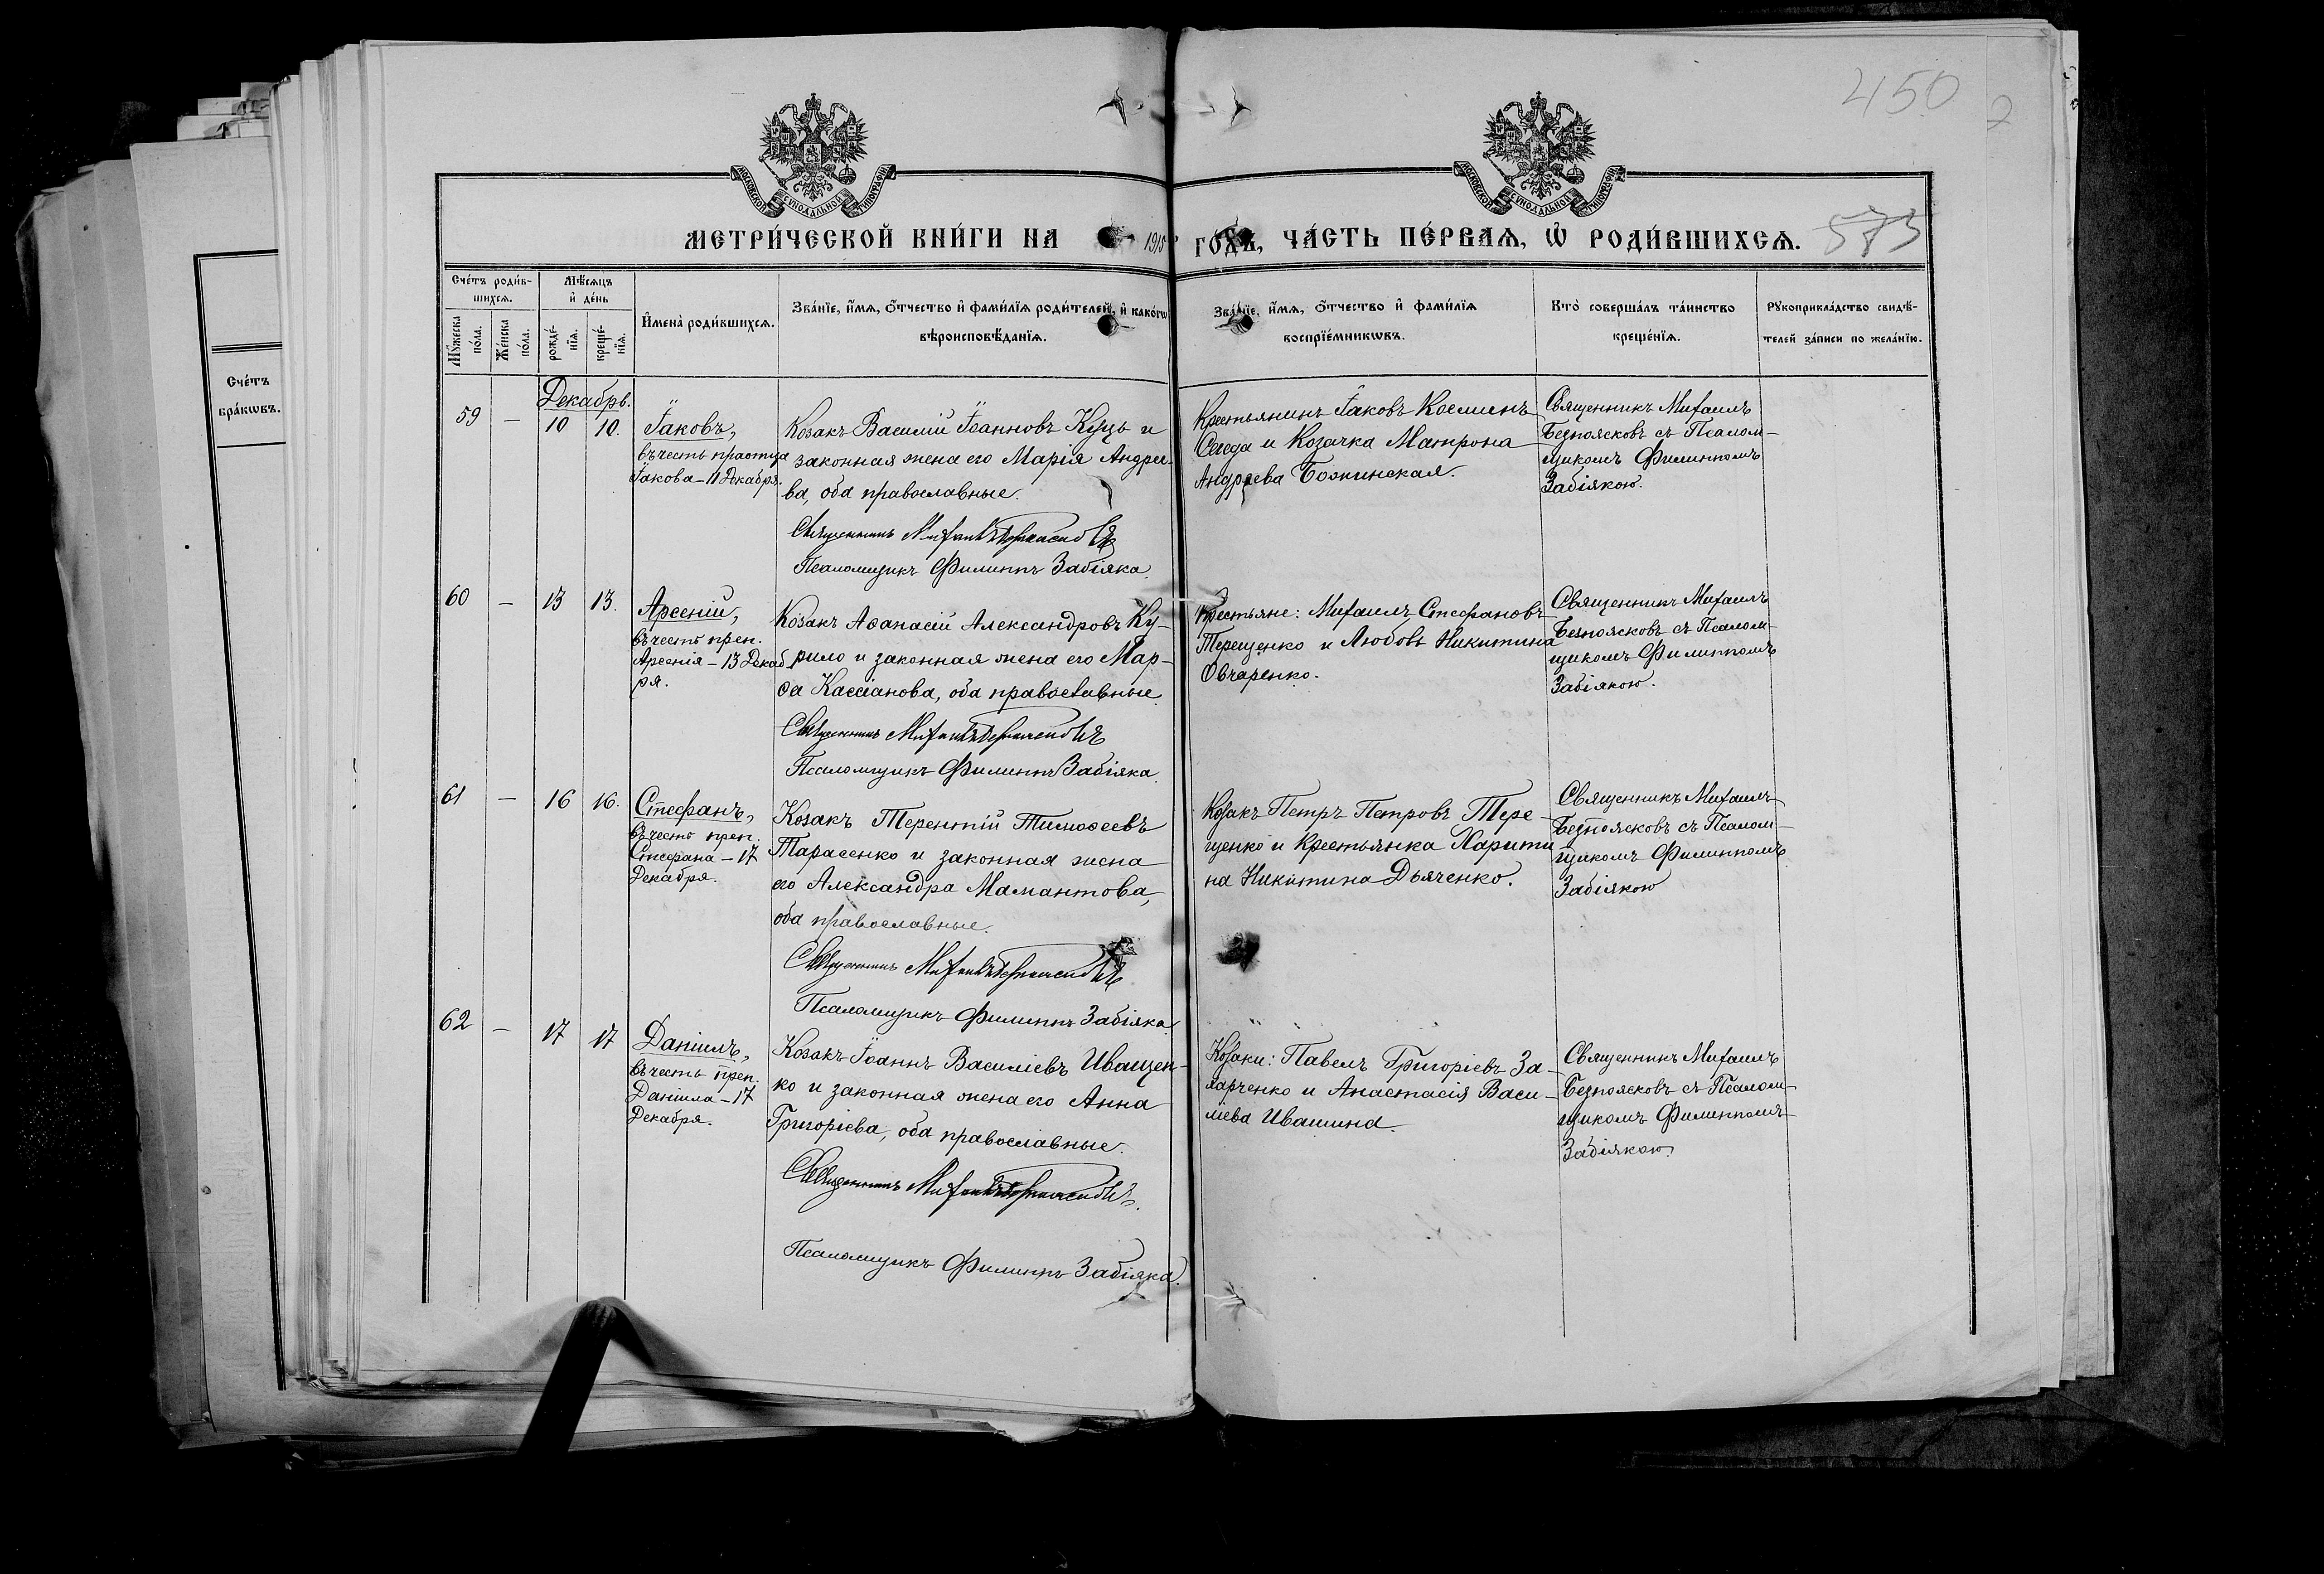 450
2
МОСКОВСКОЙ СѴНОДАЛЬНОЙ ТИПОГРАФІИ
МОСКОВСКОЙ СѴНОДАЛЬНОЙ ТИПОГРАФІИ
МЕТРИ́ЧЕСКОЙ КНИ́ГИ НА 1915 ГО́ДЪ, ЧА́СТЬ ПЕ́РВАЯ, Ѡ҆ РОДИ́ВШИХСѦ.
573
Сче́тъ
бра́кѡвъ.
Сче́тъ роди́в-
шихсѧ.
Мѣ́сѧцъ
и҆ де́нь
Мꙋ́жеска
по́ла.
Же́нска
по́ла.
рожде́-
нїѧ.
креще́-
нїѧ.
И҆мена̀ роди́вшихсѧ.
Зва́нїе, и҆́мѧ, ѻ҆́тчество и҆ фами́лїѧ роди́телей, и҆ како́гѡ
вѣроисповѣ́данїѧ.
Зва́нїе, и҆́мѧ, ѻ҆́тчество и҆ фами́лїѧ
воспрїе́мникѡвъ.
Кто̀ соверша́лъ та́инство
креще́нїѧ.
Рꙋкоприкла́дство свидѣ́-
телей за́писи по жела́нїю.
Декабрь.
59 — 10 10.
Іаковъ,
въ честь
Іакова – 11 Декабря.
Козакъ Василій Іоанновъ Куць и
законная жена его Марія Андрее-
ва, оба православные.
Священникъ Михаилъ Безпоясковъ
Псаломщикъ Филиппъ Забіяка.
Крестьянинъ Іаковъ Косминъ
Середа и Козачка Матрона
Андреева Божинская.
Священникъ Михаилъ
Безпоясковъ съ Псалом-
щикомъ Филиппомъ
Забіякою.
60 — 13 13.
Арсеній,
въ честь преп.
Арсенія – 13 Декаб-
ря.
Козакъ Аѳанасій Александровъ Ку-
рило и законная жена его Мар-
ѳа Кассіанова, оба православные.
Священникъ Михаилъ Безпоясковъ
Псаломщикъ Филиппъ Забіяка.
Крестьяне: Михаилъ Стефановъ
Терещенко и Любовь Никитина
Овчаренко.
Священникъ Михаилъ
Безпоясковъ съ Псалом-
щикомъ Филиппомъ
Забіякою.
61 — 16 16.
Стефанъ,
въ честь преп.
Стефана – 17
Декабря.
Козакъ Терентій Тимоѳеевъ
Тарасенко и законная жена
его Александра Мамантова,
оба православные.
Священникъ Михаилъ Безпоясковъ
Псаломщикъ Филиппъ Забіяка.
Козакъ Петръ Петровъ Тере-
щенко и Крестьянка Харити-
на Никитина Дьяченко.
Священникъ Михаилъ
Безпоясковъ съ Псалом-
щикомъ Филиппомъ
Забіякою
62 — 17 17
Даніилъ,
въ честь преп.
Даніила – 17
Декабря.
Козакъ Іоаннъ Василіевъ Иващен-
ко и законная жена его Анна
Григоріева, оба православные.
Священникъ Михаилъ Безпоясковъ.
Псаломщикъ Филиппъ Забіяка.
Козаки: Павелъ Григоріевъ За-
харченко и Анастасія Васи-
ліева Ивашина.
Священникъ Михаилъ
Безпоясковъ съ Псалом-
щикомъ Филиппомъ
Забіякою.